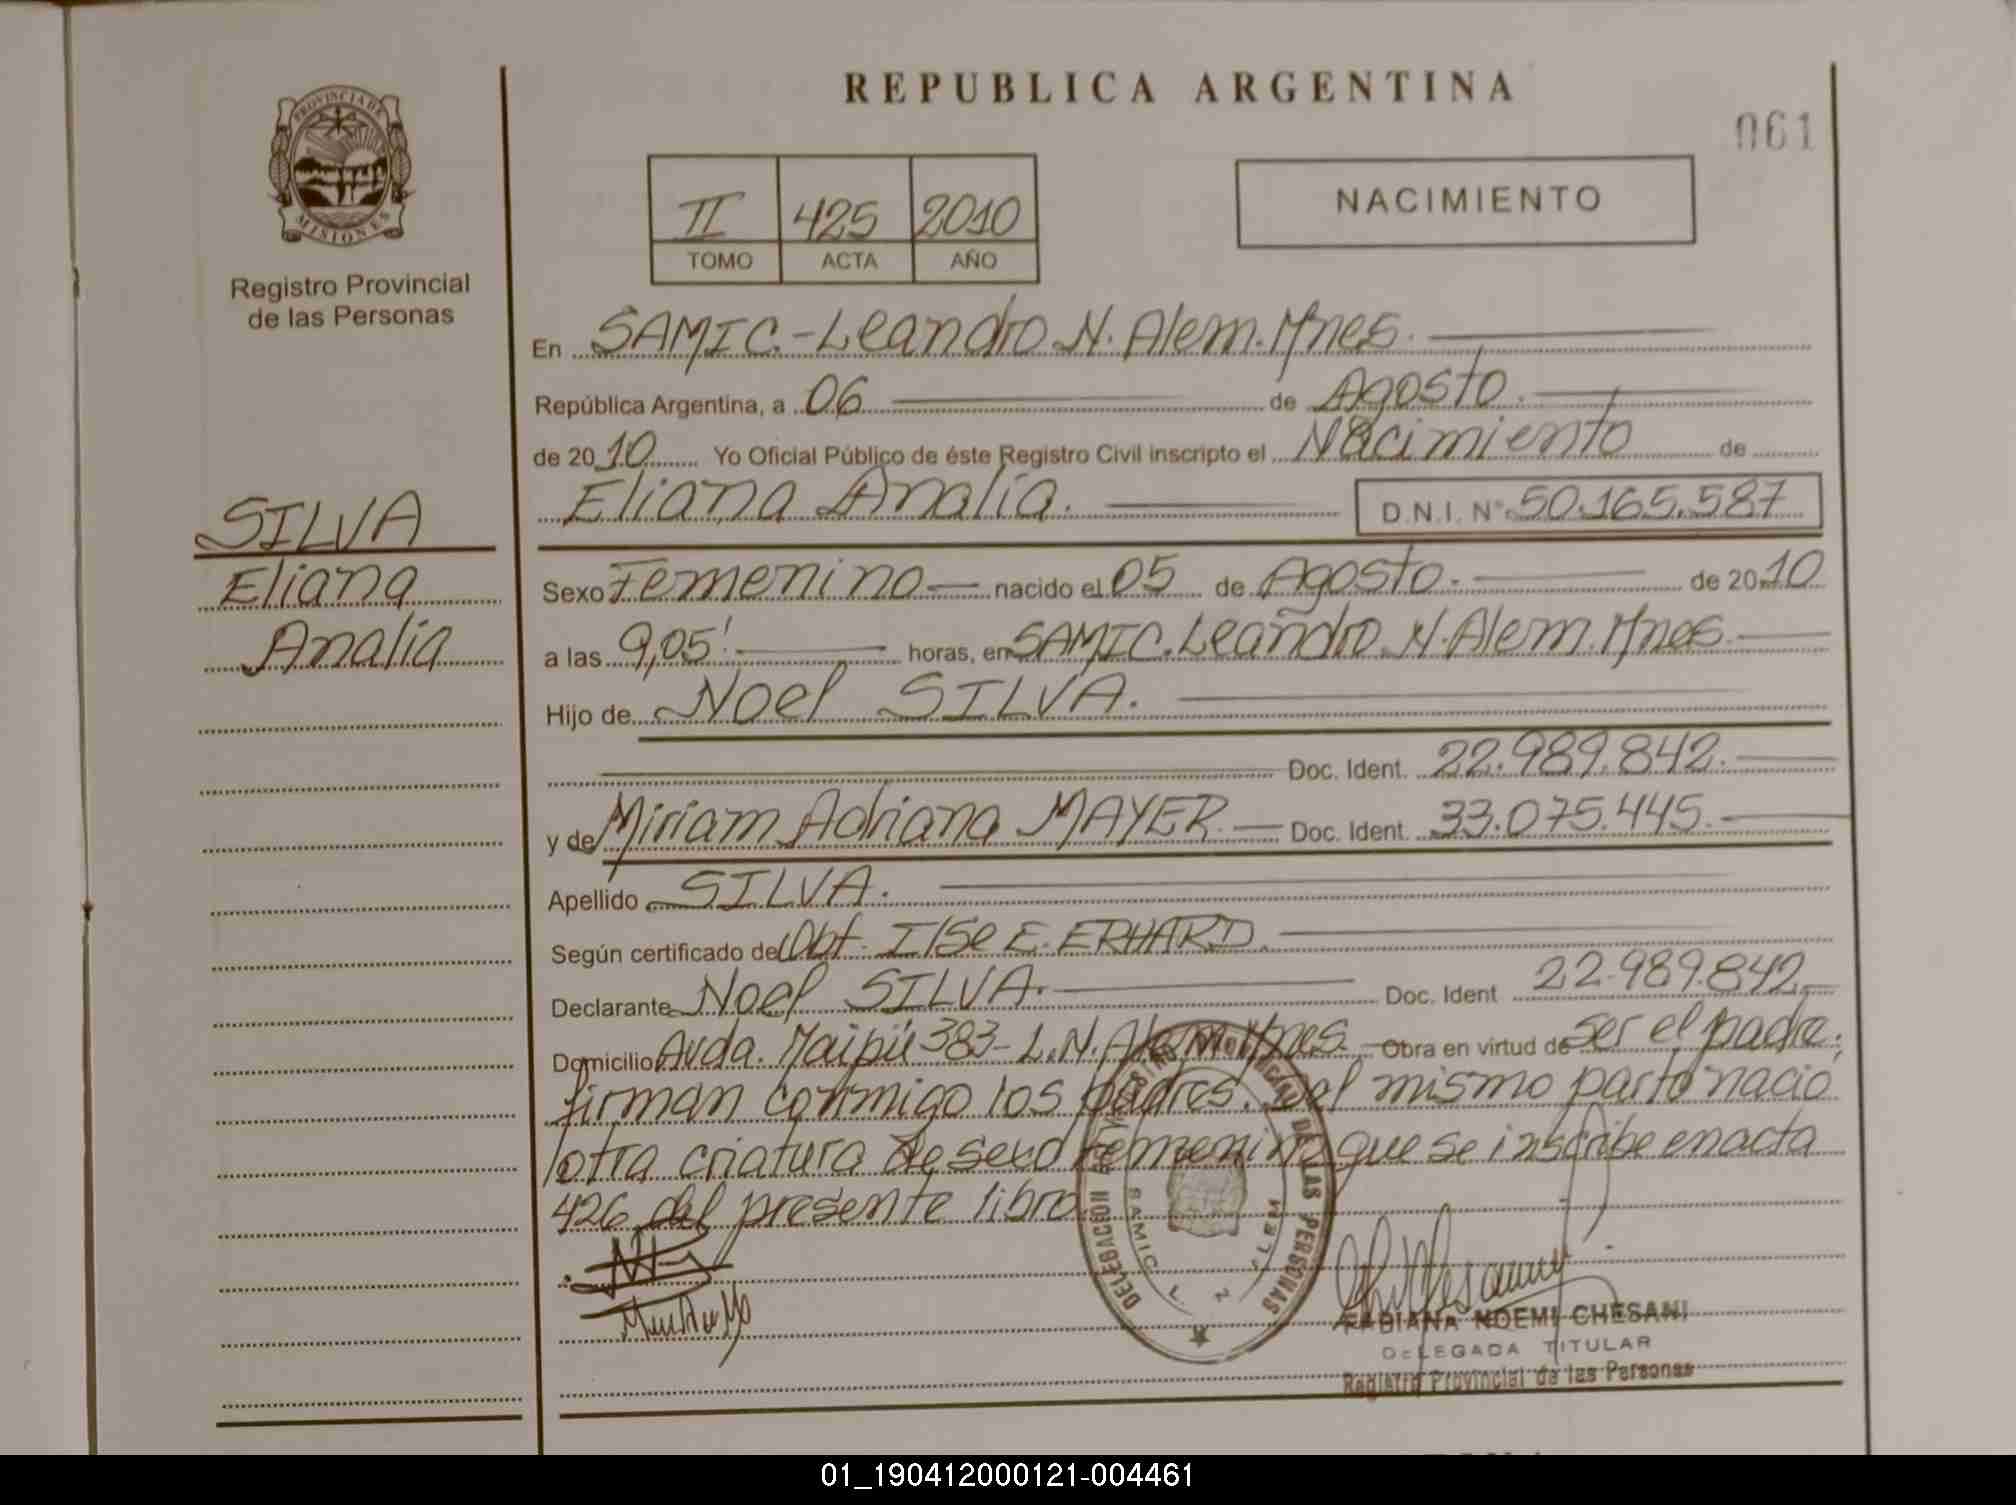 REPUBLICA ARGENTINA
061
PROVINCIA DE
MISIONES
Registro Provincial
de las Personas
II 425 2010
TOMO ACTA AÑO
NACIMIENTO
En SAMIC.-Leandro N. Alem. Mnes.
República Argentina, a 06 de Agosto.
de 2010 Yo Oficial Público de éste Registro Civil inscripto el Nacimiento de
Eliana Analía. D.N.I. N° 50.165.587
SILVA
Eliana
Analía
Sexo Femenino nacido el 05 de Agosto. de 2010
a las 9,05' horas, en SAMIC. Leandro N. Alem. Mnes.
Hijo de Noel SILVA.
Doc. Ident. 22.989.842.
y de Miriam Adriana MAYER. Doc. Ident. 33.075.445.
Apellido SILVA.
Según certificado de Obt. Ilse E. ERHARD.
Declarante Noel SILVA. Doc. Ident 22.989.842.
Domicilio Avda. Maipú 383- L.N. Alem Mnes. Obra en virtud de ser el padre;
firman conmigo los padres. Del mismo parto nació
otra criatura de sexo femenino que se inscribe en acta
426 del presente libro
DELEGACION REGISTRO PROVINCIAL DE LAS PERSONAS
SAMIC L. N. ALEM
FABIANA NOEMI CHESANI
DELEGADA TITULAR
Registro Provincial de las Personas
01_190412000121-004461